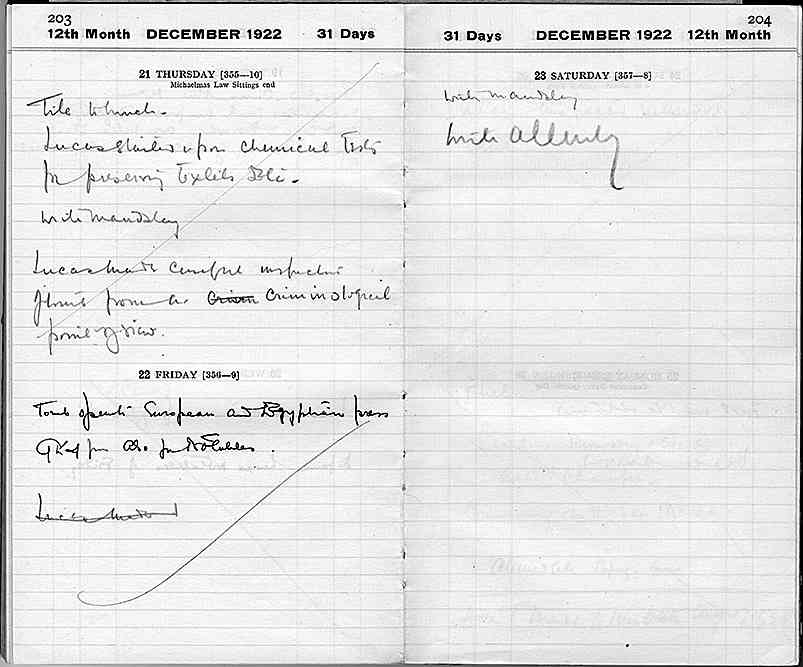 203
12th Month DECEMBER 1922 31 Days
21 THURSDAY [355—10]
Michaelmas Law Sittings end
Tile to lunch.
Lucas started upon chemical Tests
for preserving Textiles &c.
write Maudslay
Lucas made careful inspection
from a ~~Crim~~ Criminological
point of view.
22 FRIDAY [356—9]
Tomb open to European and Egyptian press
Also for Notables.
~~Lucas made~~
204
31 Days DECEMBER 1922 12th Month
23 SATURDAY [357—8]
write Maudslay
write Allenby